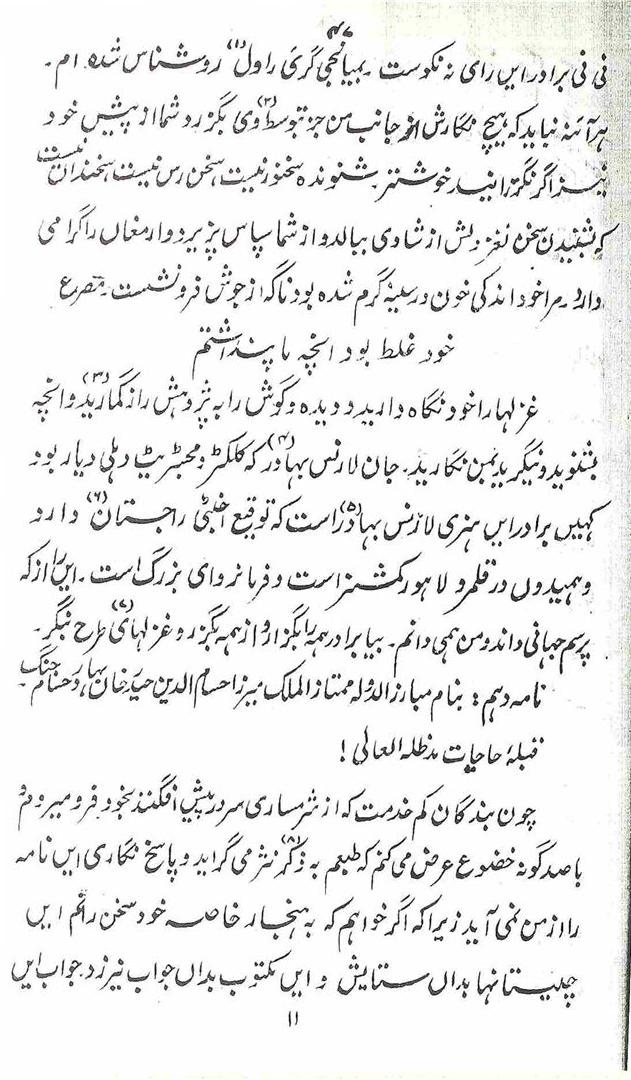 ۴۷
نی نی برادر این رای نہ نکوست۔ بمیانجی گری راول(۱) روشناس شدہ ام۔
ہر آئنہ نباید کہ ہیچ نگارش از جانب من جز بتوسط(۲) وی بگزرد شما از پیش خود
نیز اگر نگزرانید خوشتر۔ شنوندہ سخنور نیست سخن رس نیست سخندان نیست
کہ بشنیدن سخن نغز دلش از شادی ببالد و از شما سپاس پزیرد و ارمغاں را گرامی
دارد۔ مرا خود اندکی خون در سینہ گرم شدہ بود ناگہ از جوش فرو نشست۔ مصرع
خود غلط بود انچہ ما پنداشتم
غزلہا را خود نگاہ دارید و دیدہ و گوش را بہ پژوہش راز گمارید(۳) و انچہ
بشنوید و نگرید بمن نگارید۔ جان لارنس بہادر(۴) کہ کلکٹر و مجسٹریٹ دہلی دیار بود
کہیں برادر ایں ہنری لارنس بہادر(۵) است کہ توقیع اجنٹی راجستان(۶) دارد
و ہمیدوں در قلمرو لاہور کمشنر است و فرمانروای بزرگ است۔ ایں را از کہ
پرسم جہانی داند و من ہمی دانم۔ بیا برادر ہمہ را بگزار و از ہمہ بگزر و غزلہای(۷) طرح بنگر۔
نامہ دہم: بنام مبارز الدولہ ممتاز الملک میرزا حسام الدین حیدر خان بہادر حسام جنگ۔
قبلۂ حاجات مدظلہ العالی!
چون بندگان کم خدمت کہ از شرمساری سر در پیش افگنند بخود فرو میروم و
با صد گونہ خضوع عرض می کنم کہ طبعم بہ ذکر(۸) نثر می گراید و پاسخ نگاری ایں نامہ
را از من نمی آید زیرا کہ اگر خواہم کہ بہنجار خاصہ خود سخن رانم ایں
چیستانہا بداں ستایش و ایں مکتوب بداں جواب نیرزد جواب ایں
۱۱